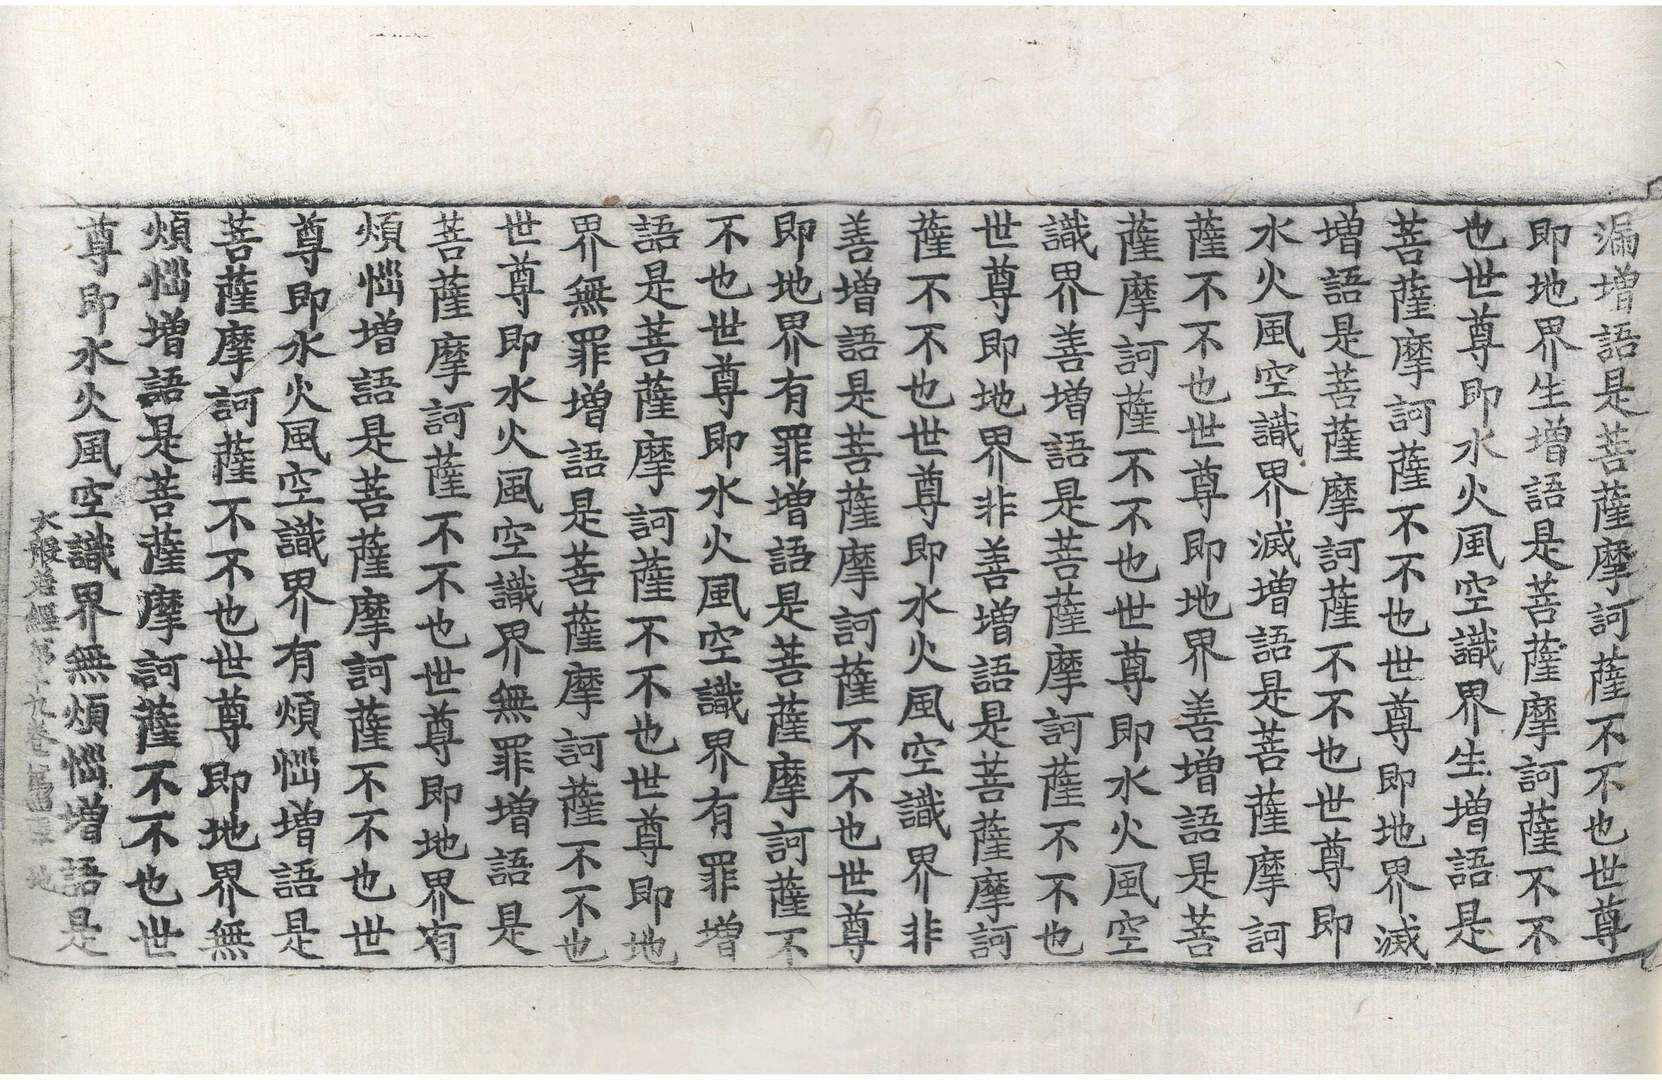 漏增語是菩薩摩訶薩不不也世尊
即地界生增語是菩薩摩訶薩不不
也世尊即水火風空識界生增語是
菩薩摩訶薩不不也世尊即地界滅
增語是菩薩摩訶薩不不也世尊即
水火風空識界滅增語是菩薩摩訶
薩不不也世尊即地界善增語是菩
薩摩訶薩不不也世尊即水火風空
識界善增語是菩薩摩訶薩不不也
世尊即地界非善增語是菩薩摩訶
薩不不也世尊即水火風空識界非
善增語是菩薩摩訶薩不不也世尊
即地界有罪增語是菩薩摩訶薩不
不也世尊即水火風空識界有罪增
語是菩薩摩訶薩不不也世尊即地
界無罪增語是菩薩摩訶薩不不也
世尊即水火風空識界無罪增語是
菩薩摩訶薩不不也世尊即地界有
煩惱增語是菩薩摩訶薩不不也世
尊即水火風空識界有煩惱增語是
菩薩摩訶薩不不也世尊即地界無
煩惱增語是菩薩摩訶薩不不也世
尊即水火風空識界無煩惱增語是
大般若經第十九卷 張 地